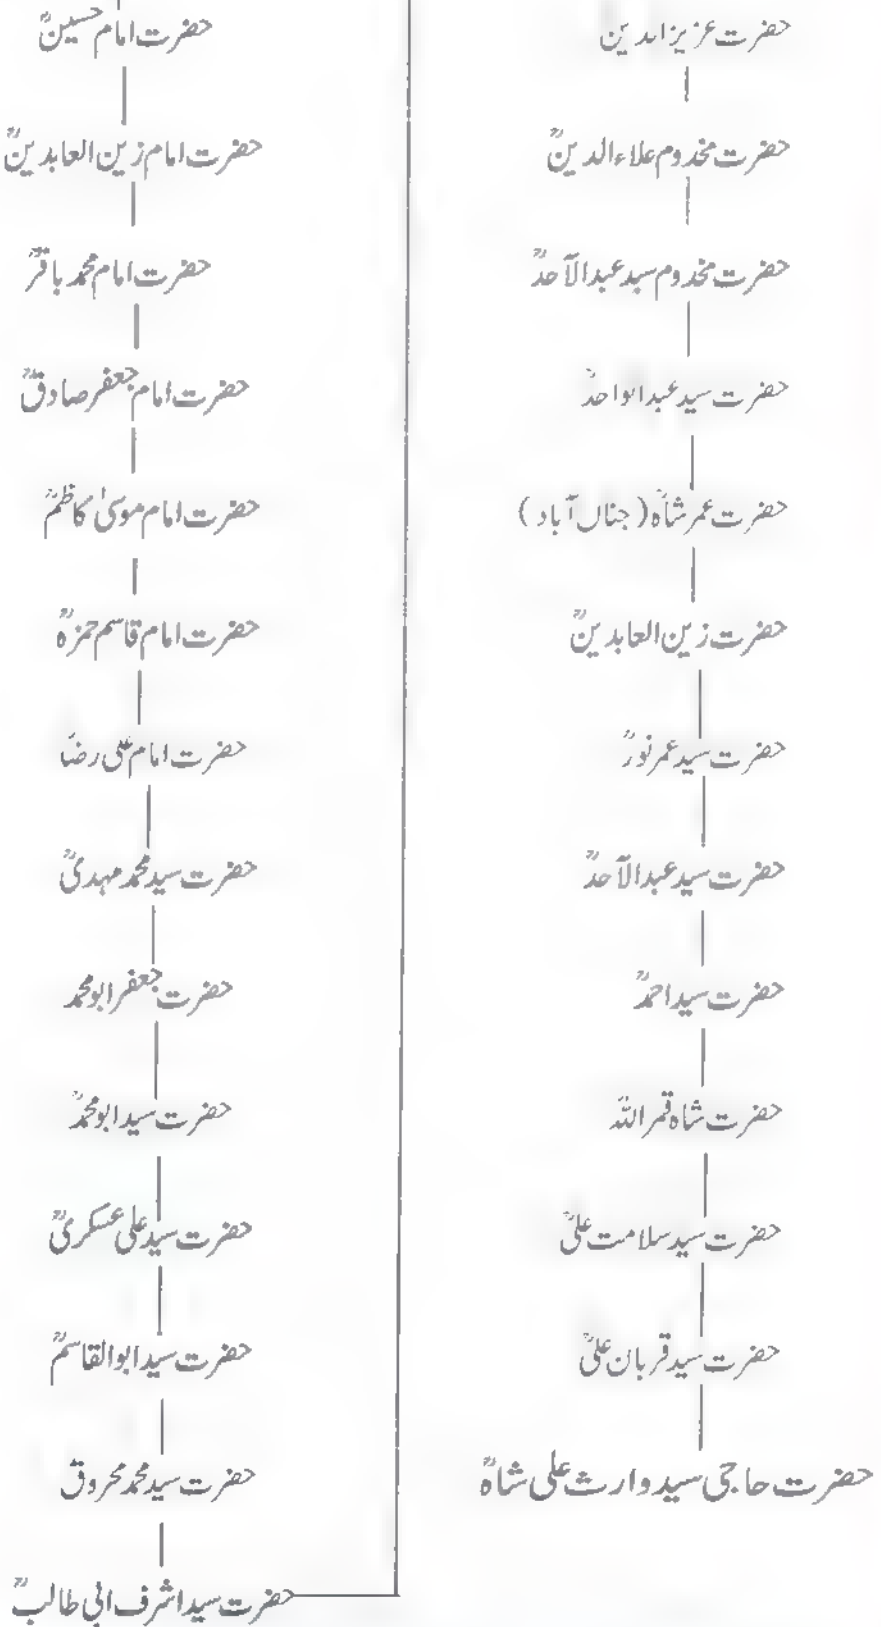 حضرت امام حسینؒ
حضرت امام زین العابدینؒ
حضرت امام محمد باقرؒ
حضرت امام جعفر صادقؒ
حضرت امام موسیٰ کاظمؒ
حضرت امام قاسم حمزہؒ
حضرت امام علی رضاؒ
حضرت سید محمد مہدیؒ
حضرت جعفر ابو محمد
حضرت سید ابو محمدؒ
حضرت سید علی عسکریؒ
حضرت سید ابوالقاسمؒ
حضرت سید محمد محروقؒ
حضرت سید اشرف ابی طالبؒ
حضرت عزیز الدین
حضرت مخدوم علاء الدینؒ
حضرت مخدوم سید عبدالآحدؒ
حضرت سید عبدالواحدؒ
حضرت عمر شاہؒ (جناں آباد)
حضرت زین العابدینؒ
حضرت سید عمر نورؒ
حضرت سید عبدالآحدؒ
حضرت سید احمدؒ
حضرت شاہ قمر اللہؒ
حضرت سید سلامت علیؒ
حضرت سید قربان علیؒ
حضرت حاجی سید وارث علی شاہؒ